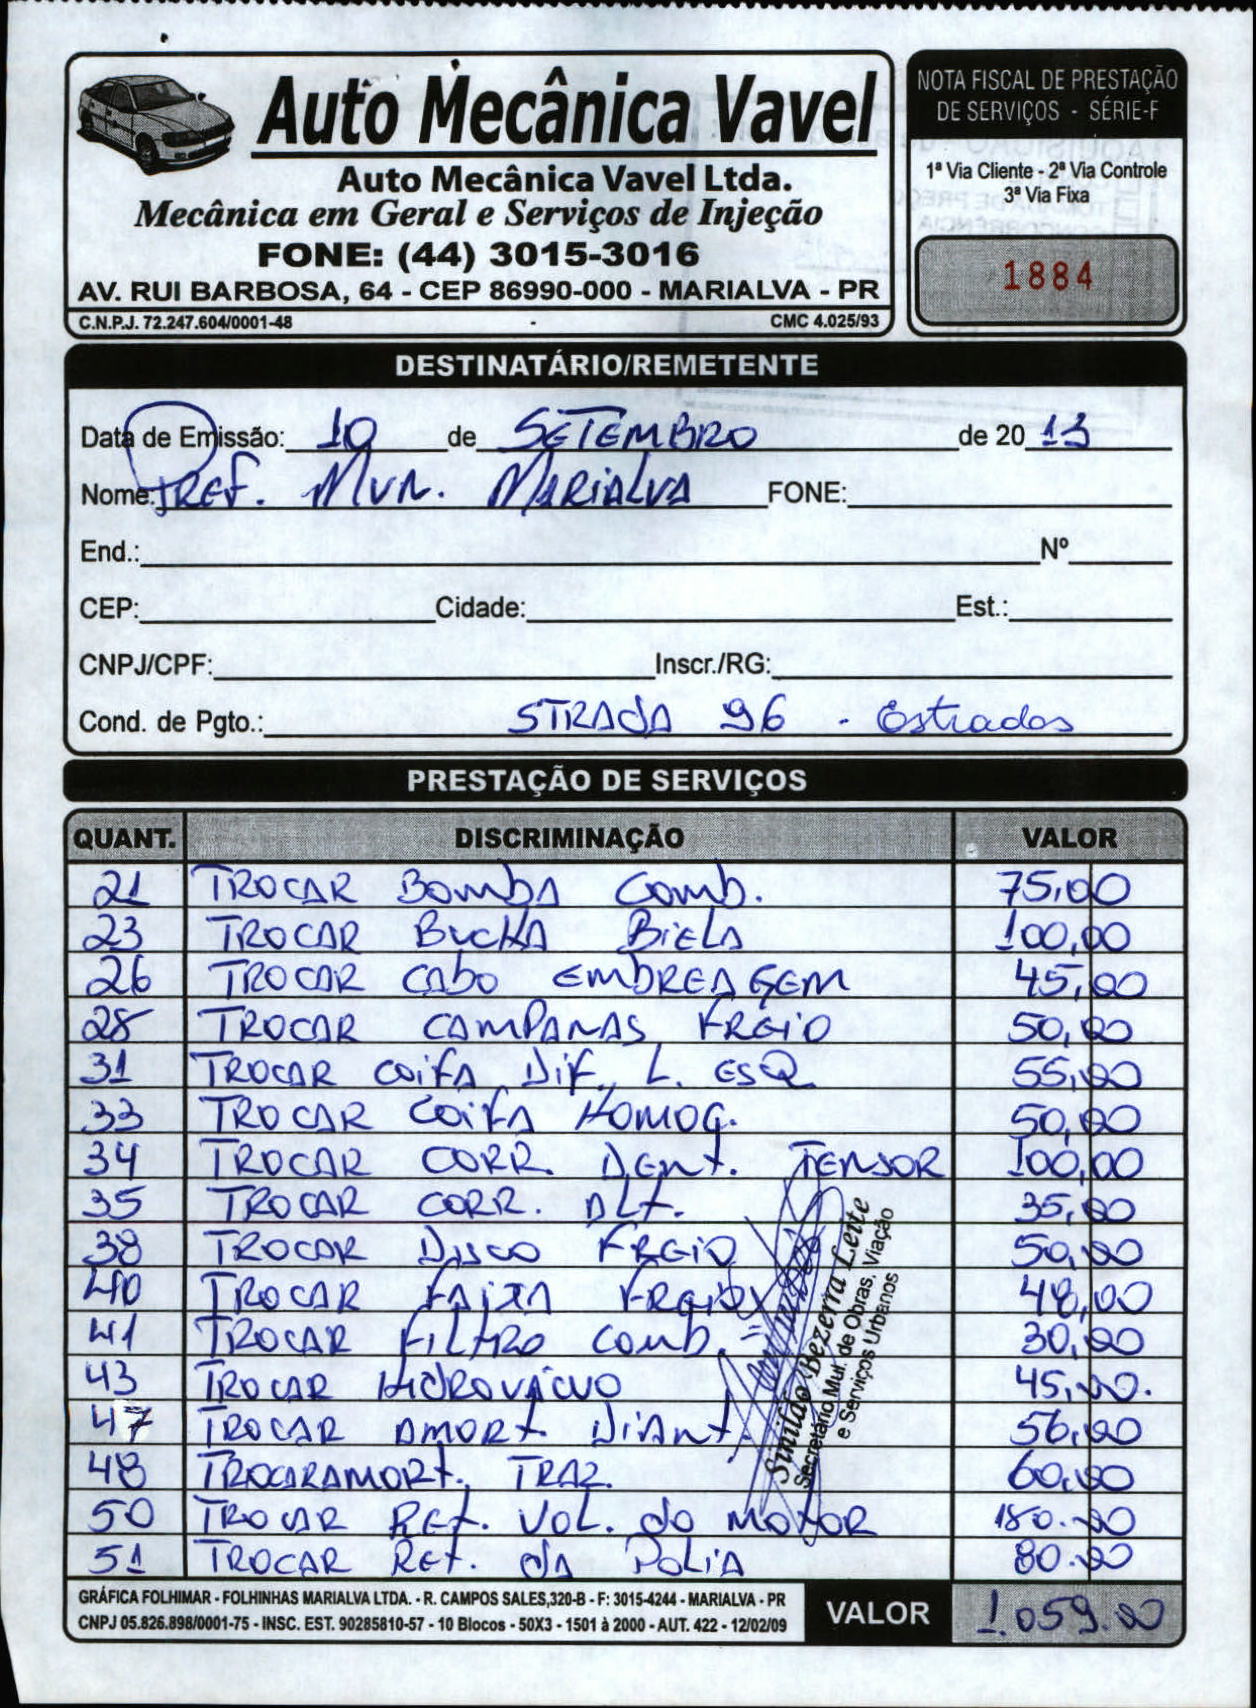 Auto Mecânica Vavel
Auto Mecânica Vavel Ltda.
Mecânica em Geral e Serviços de Injeção
FONE: (44) 3015-3016
AV. RUI BARBOSA, 64 - CEP 86990-000 - MARIALVA - PR
C.N.P.J. 72.247.604/0001-48 CMC 4.025/93
NOTA FISCAL DE PRESTAÇÃO
DE SERVIÇOS - SÉRIE-F
1ª Via Cliente - 2ª Via Controle
3ª Via Fixa
1884
DESTINATÁRIO/REMETENTE
Data de Emissão: 10 de SETEMBRO de 20 13
Nome: PREF. MUN. MARIALVA FONE:
End.: Nº
CEP: Cidade: Est.:
CNPJ/CPF: Inscr./RG:
Cond. de Pgto.: STRADA 96 - Estradas
PRESTAÇÃO DE SERVIÇOS
QUANT. DISCRIMINAÇÃO VALOR
21 TROCAR BOMBA COMB. 75,00
23 TROCAR BUCHA BIELA 100,00
26 TROCAR CABO EMBREAGEM 45,00
28 TROCAR CAMPANAS FREIO 50,00
31 TROCAR COIFA DIF. L. ESQ 55,00
33 TROCAR COIFA HOMOG. 50,00
34 TROCAR CORR. DENT. TENSOR 100,00
35 TROCAR CORR. ALT. 35,00
38 TROCAR DISCO FREIO 50,00
40 TROCAR FAIXA FREIO 48,00
41 TROCAR FILTRO COMB. 30,00
43 TROCAR HIDROVÁCUO 45,00.
47 TROCAR AMORT DIANT. 56,00
48 TROCAR AMORT. TRAZ. 60,00
50 TROCAR RET. VOL. DO MOTOR 180.00
51 TROCAR RET. DA POLIA 80.00
Sinildo Bezerra Leite
Secretário Mul. de Obras, Viação
e Serviços Urbanos
GRÁFICA FOLHIMAR - FOLHINHAS MARIALVA LTDA. - R. CAMPOS SALES,320-B - F: 3015-4244 - MARIALVA - PR
CNPJ 05.826.898/0001-75 - INSC. EST. 90285810-57 - 10 Blocos - 50X3 - 1501 à 2000 - AUT. 422 - 12/02/09
VALOR 1.059.00